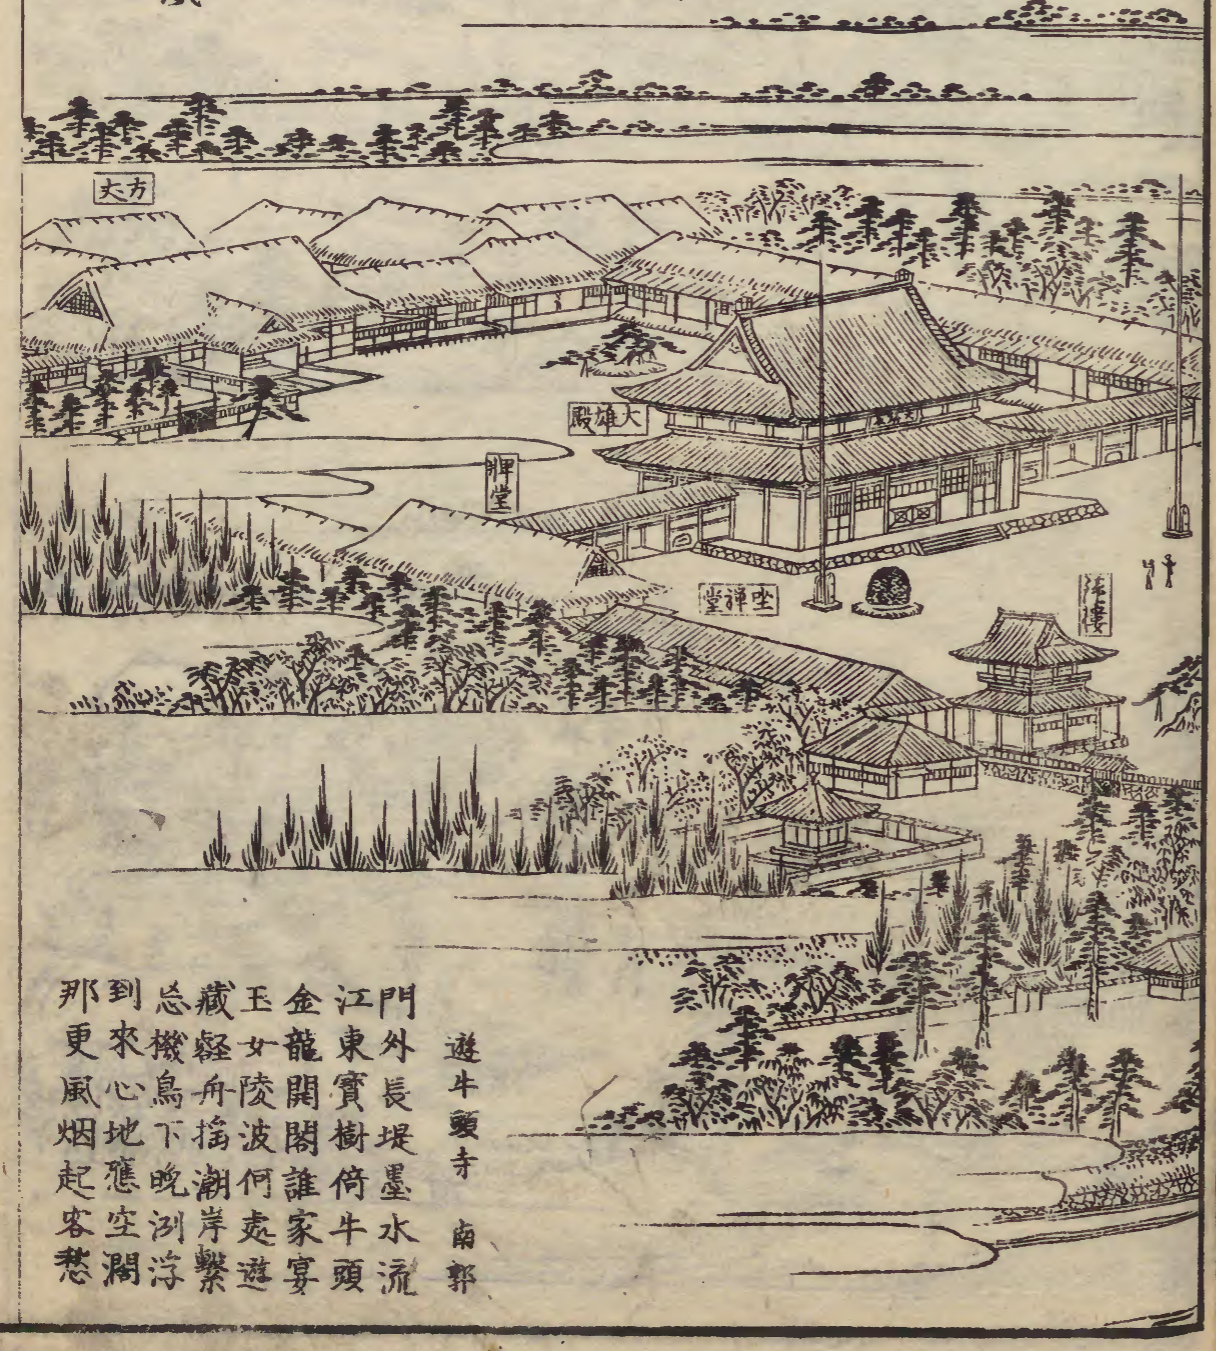 方丈
大雄殿
牌堂
坐禅堂
樓
遊牛頭寺 南郭
門外長堤墨水流
江東寶樹倚牛頭
金龍開閣誰家宴
玉女陵波何處遊
藏壑舟搖潮岸繫
忘機鳥下晩洲浮
到來心地應空濶
那更風烟起客愁